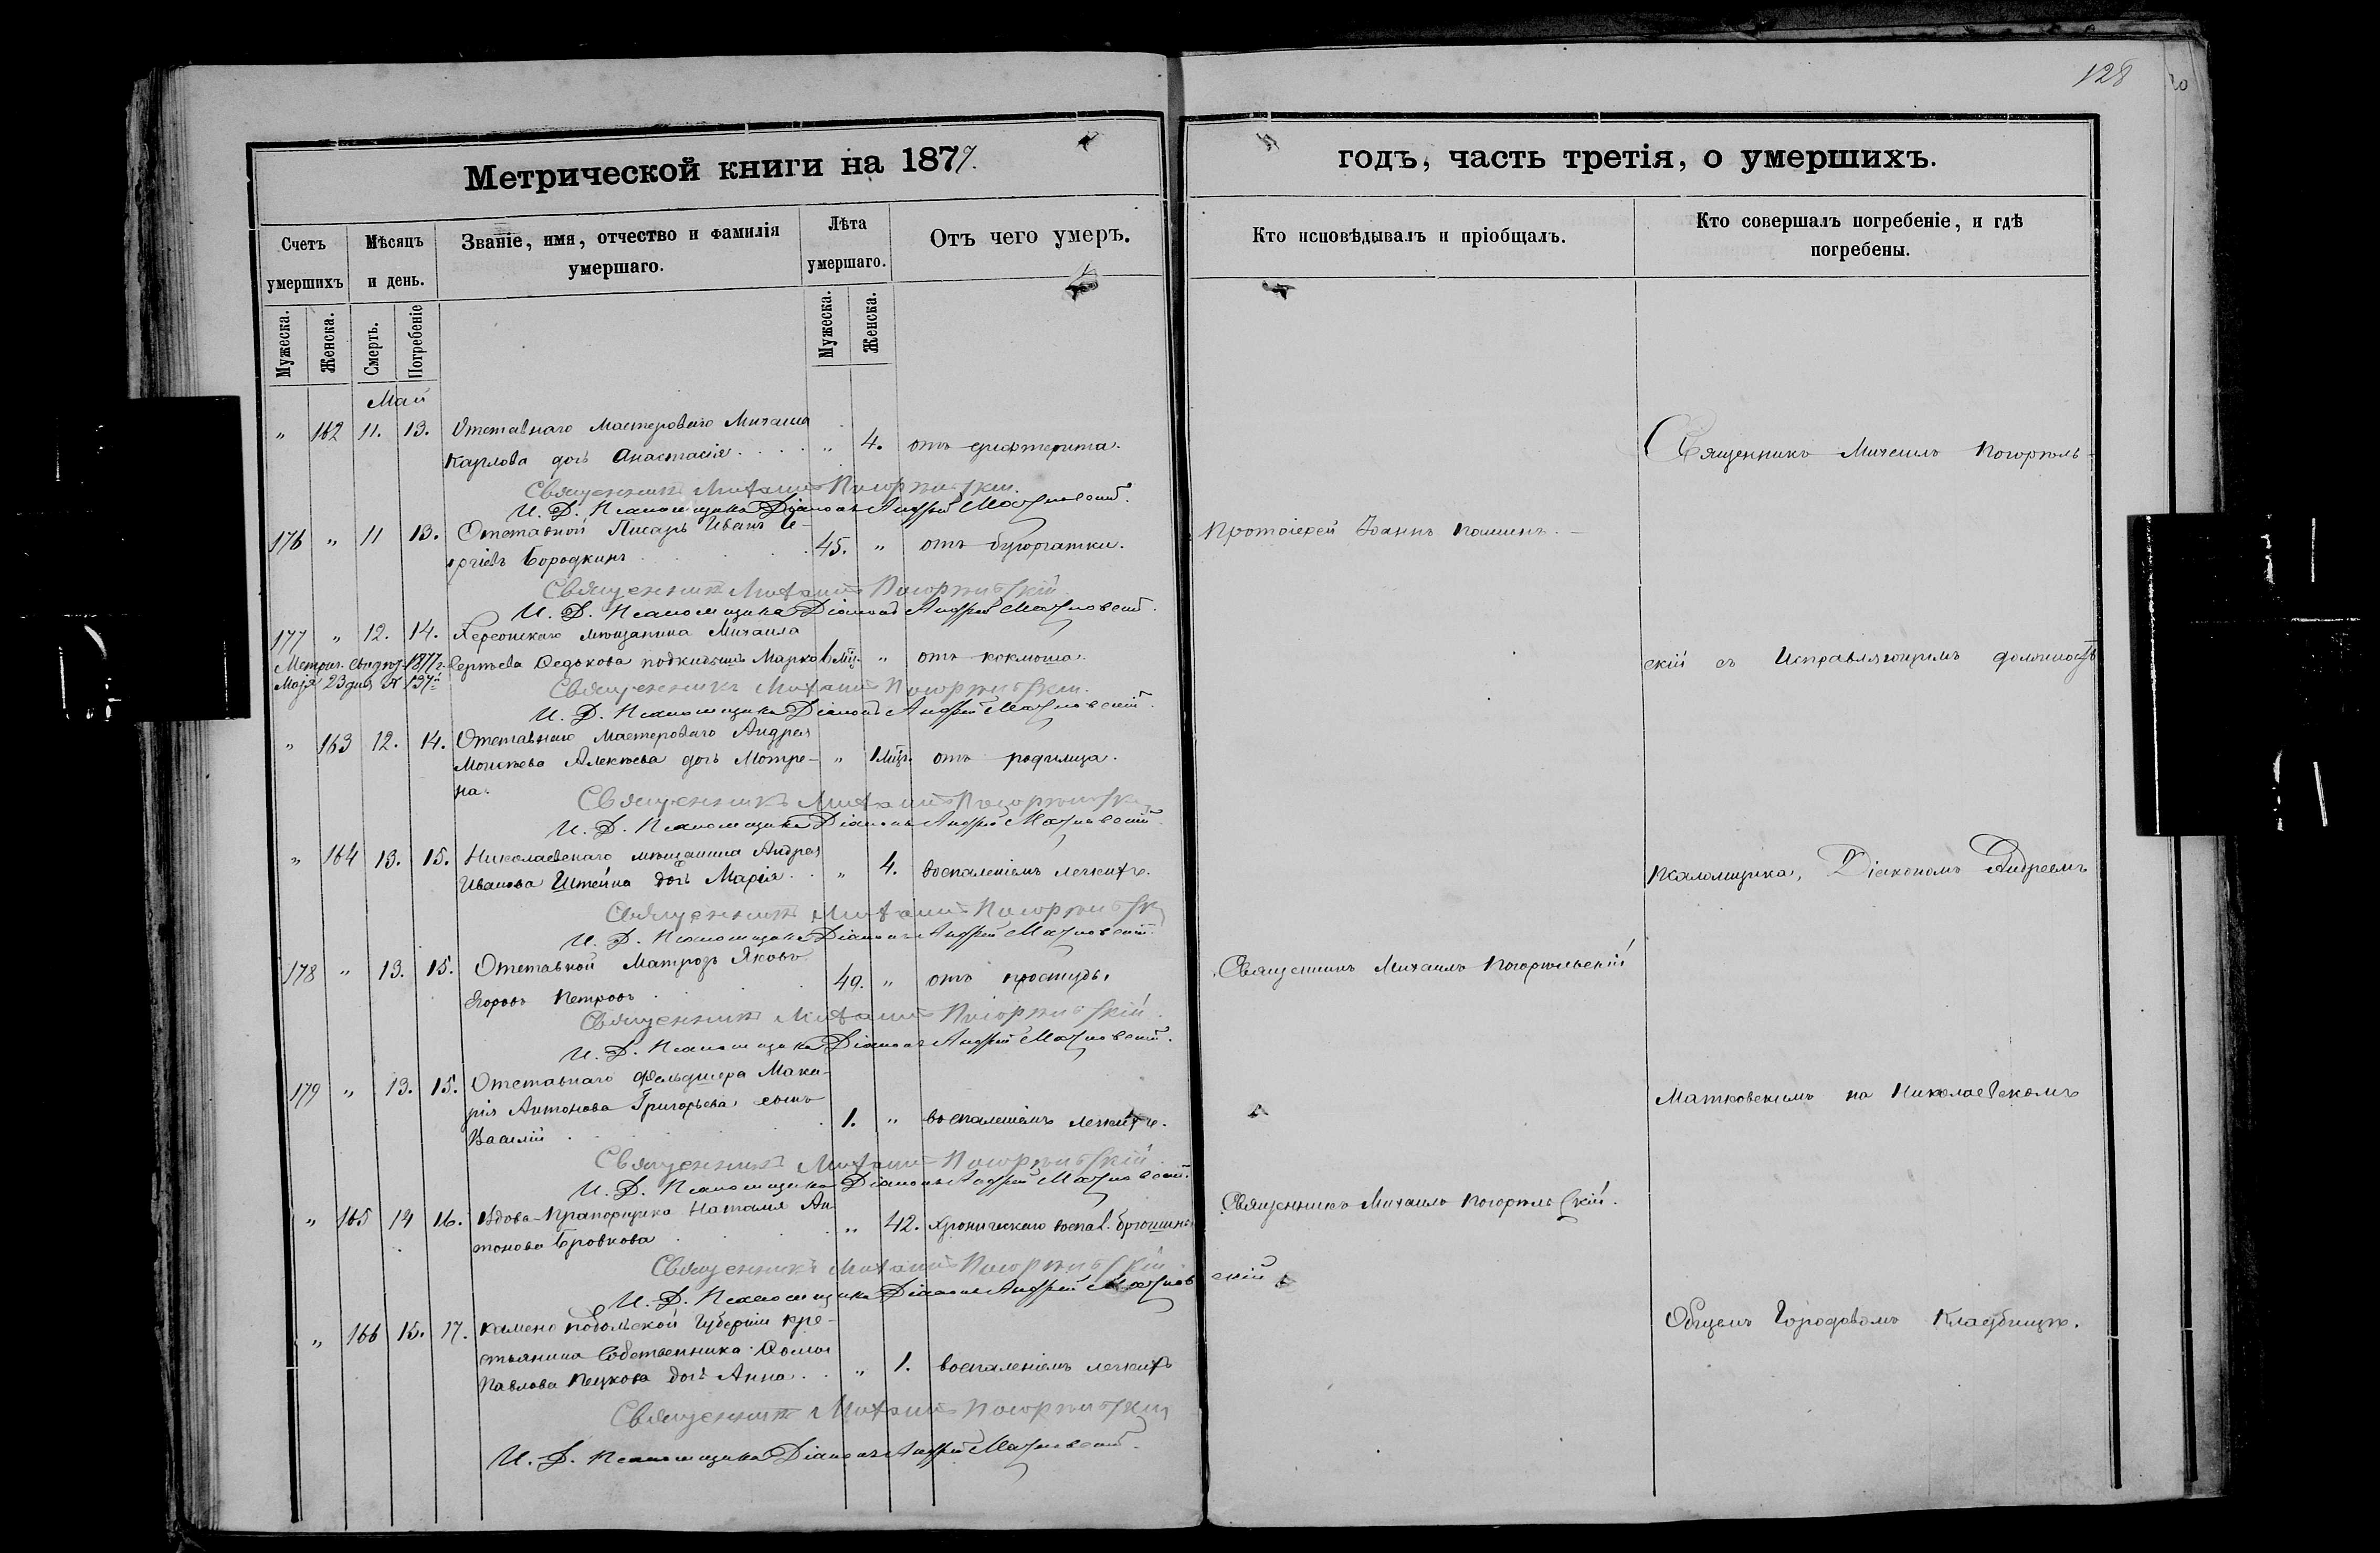 128
Метрической книги на 1877.
годъ, часть третія, о умершихъ.
Счетъ умершихъ
Мѣсяцъ и день.
Званіе, имя, отчество и фамилія умершаго.
Лѣта умершаго.
Отъ чего умеръ.
Кто исповѣдывалъ и пріобщалъ.
Кто совершалъ погребеніе, и гдѣ погребены.
Мужеска.
Женска.
Смерть.
Погребеніе
Мужеска.
Женска.
Май
" 162 11. 13. Отставнаго Мастероваго Михаила
Карлова дочь Анастасія . . . . " 4. отъ дифтерита.
Священникъ Михаилъ Погорѣльскій.
И. Д. Псаломщика Діаконъ Андрей Матковскій.
176 " 11 13. Отставной Писарь Иванъ Ге-
оргіевъ Бородкинъ . . . 45. " отъ бугорчатки. Протоіерей Іоаннъ
Священникъ Михаилъ Погорѣльскій.
И. Д. Псаломщика Діаконъ Андрей Матковскій.
177 " 12. 14. Херсонскаго мѣщанина Михаила
Сергѣева Седькова подкидышъ Марко 6 мѣц. " отъ коклюша.
Метрич. свидѣт. 1877 г.
Мая 23 дня № 137й
Священникъ Михаилъ Погорѣльскій.
И. Д. Псаломщика Діаконъ Андрей Матковскій.
" 163 12. 14. Отставнаго Мастероваго Андрея
Моисѣева Алексѣева дочь Мотре- " 1 мѣц. отъ родимца.
на.
Священникъ Михаилъ Погорѣльскій
И. Д. Псаломщика Діаконъ Андрей Матковскій.
" 164 13. 15. Николаевскаго мѣщанина Андрея
Иванова Штейна дочь Марія . . " 4. воспаленіемъ легкихъ.
Священникъ Михаилъ Погорѣльскій
И. Д. Псаломщика Діаконъ Андрей Матковскій.
178 " 13. 15. Отставной Матрозъ Яковъ
Егоровъ Петровъ . . 49. " отъ простуды Священникъ Михаилъ Погорѣльскій
Священникъ Михаилъ Погорѣльскій.
И. Д. Псаломщика Діаконъ Андрей Матковскій.
179 " 13. 15. Отставнаго Фельдшера Мака-
рія Антонова Григорьева сынъ
Василій . . . . 1. " воспаленіемъ легкихъ.
Священникъ Михаилъ Погорѣльскій.
И. Д. Псаломщика Діаконъ Андрей Матковскій.
" 165 14 16. Вдова Прапорщика Наталія Ан-
тонова Бровкова . . . " 42. Хроническаго воспал. брюшины Священникъ Михаилъ Погорѣльскій.
Священникъ Михаилъ Погорѣльскій.
И. Д. Псаломщика Діаконъ Андрей Матковскій
" 166 15. 17. Камено Подольской Губерніи кре-
стьянина Собственника Ѳомы
Павлова дочь Анна . . " 1. воспаленіемъ легкихъ
Священникъ Михаилъ Погорѣльскій
И. Д. Псаломщика Діаконъ Андрей Матковскій.
Священникъ Михаилъ Погорѣль-
скій съ Исправляющимъ должность
псаломщика, Діакономъ Андреемъ
Матковскимъ на Николаевскомъ
Общемъ Городовомъ Кладбищѣ.